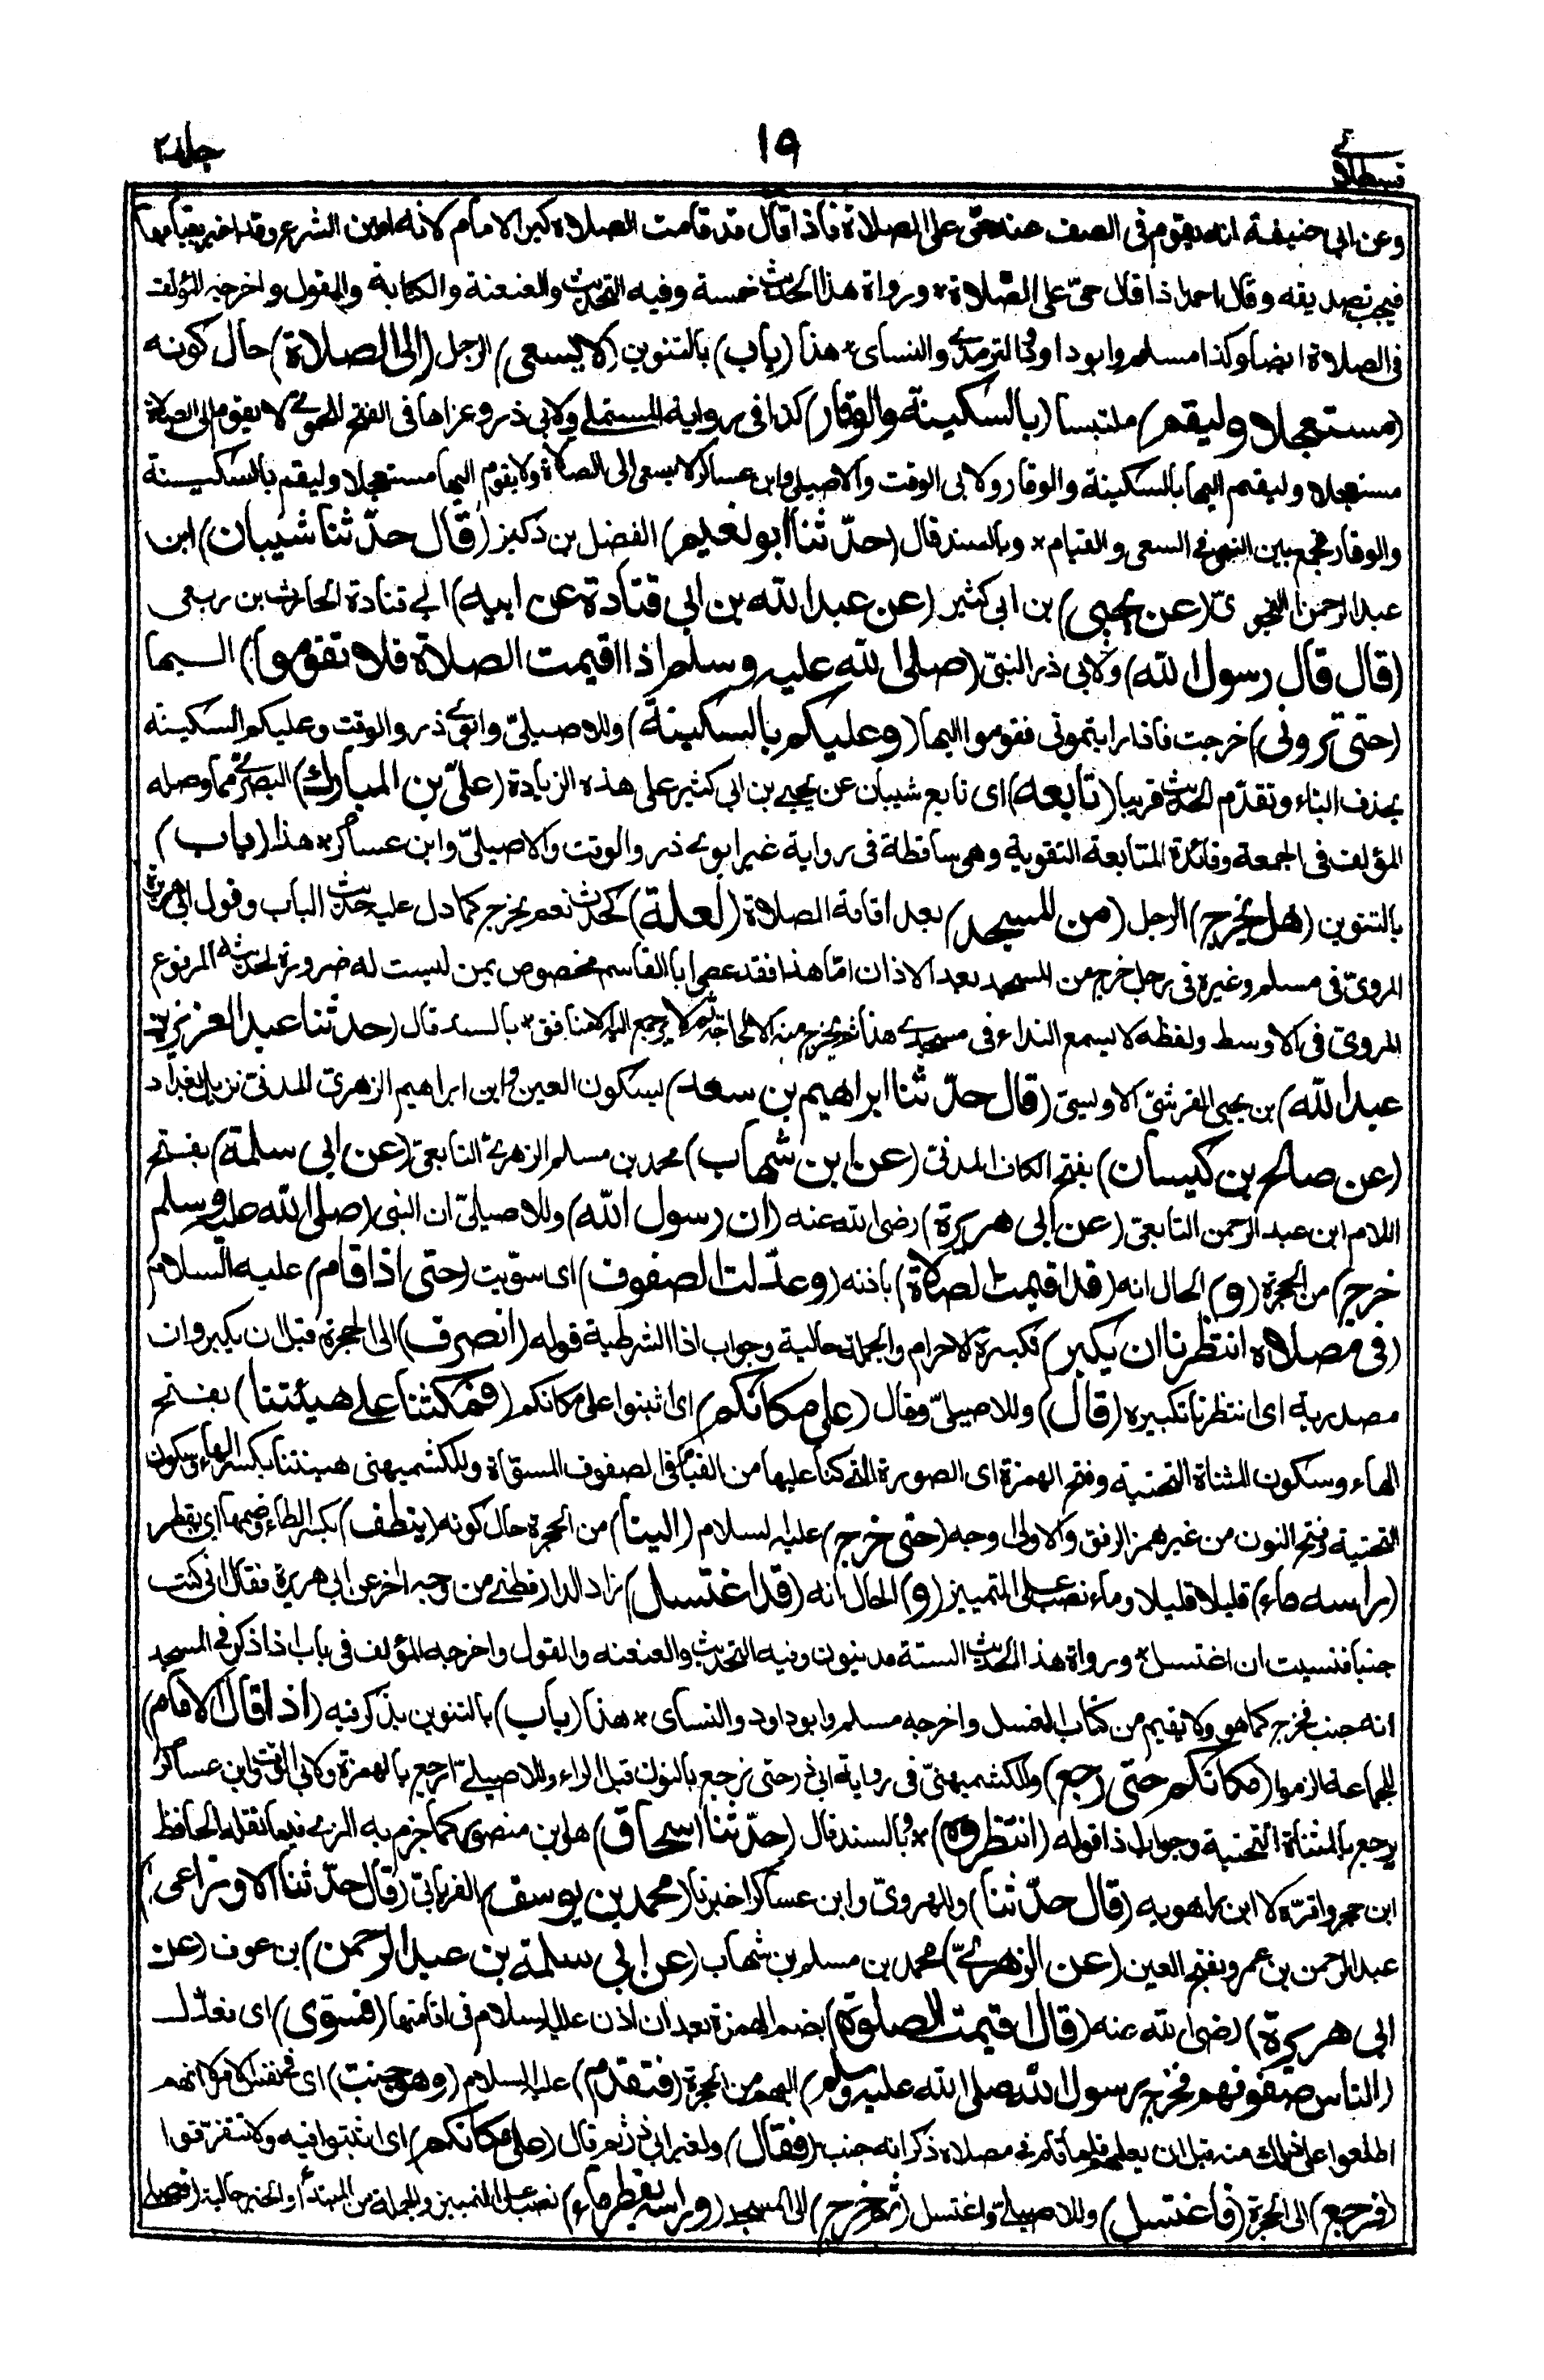 قسطلانی
١٩
جلد ٢
وعن ابى حنيفة انه يقوم فى الصف عند حىّ على الصلاة فاذا قال قد قامت الصلاة كبر الامام لانه امين الشرع وقد اخبر بقيامها
فيجب تصديقه وقال احمد اذا قال حىّ على الصلاة * ورواة هذا الحديث خمسة وفيه التحديث والعنعنة والكتابة والقول واخرجه المؤلف
فى الصلاة ايضا وكذا مسلم وابو داود والترمذى والنساى * هذا (باب) بالتنوين (لا يسعى) الرجل (الى الصلاة) حال كونه
(مستعجلا وليقم) ملتبسا (بالسكينة والوقار) كذا فى رواية المستملى ولابى ذر وعزاها فى الفتح للحموى لا يقوم الى الصلاة
مستعجلا وليقم اليها بالسكينة والوقار ولابى الوقت والاصيلى وابن عساكر لا يسعى الى الصلاة ولا يقوم اليها مستعجلا وليقم بالسكينة
والوقار فجمع بين النهى فى السعى والقيام * وبالسند قال (حدّثنا ابو نعيم) الفضل بن دكين (قال حدّثنا شيبان) ابن
عبد الرحمن النحوىّ (عن يحيى) بن ابى كثير (عن عبد الله بن ابى قتادة عن ابيه) ابى قتادة الحارث بن ربعى
(قال قال رسول الله) ولابى ذر النبىّ (صلى الله عليه وسلم اذا اقيمت الصلاة فلا تقوموا) اليها
(حتى ترونى) خرجت فاذا رايتمونى فقوموا اليها (وعليكم بالسكينة) وللاصيلىّ وابوى ذر والوقت وعليكم السكينة
بحذف الباء وتقدّم الحديث قريبا (تابعه) اى تابع شيبان عن يحيى بن ابى كثير على هذه الزيادة (علىّ بن المبارك) البصرىّ مما وصله
المؤلف فى الجمعة وفائدة المتابعة التقوية وهى ساقطة فى رواية غير ابوى ذر والوقت والاصيلىّ وابن عساكر * هذا (باب)
بالتنوين (هل يخرج) الرجل (من المسجد) بعد اقامة الصلاة (لعلة) كحدث نعم يخرج كما دل عليه حديث الباب وقول ابى هريرة
المروىّ فى مسلم وغيره فى رجل خرج من المسجد بعد الاذان امّا هذا فقد عصى ابا القاسم مخصوص بمن ليست له ضرورة لحديثه المرفوع
المروىّ فى الاوسط ولفظه لا يسمع النداء فى مسجدى هذا ثم يخرج منه الا لحاجة ثم لا يرجع اليه الا منافق * بالسند قال (حدثنا عبد العزيز بن
عبد الله) بن يحيى القرشىّ الاويسىّ (قال حدّثنا ابراهيم بن سعد) بسكون العين ابن ابراهيم الزهرىّ المدنىّ نزيل بغداد
(عن صالح بن كيسان) بفتح الكاف المدنىّ (عن ابن شهاب) محمد بن مسلم الزهرىّ التابعىّ (عن ابى سلمة) بفتح
اللام ابن عبد الرحمن التابعىّ (عن ابى هريرة) رضى الله عنه (ان رسول الله) وللاصيلىّ ان النبى (صلى الله عليه وسلم
خرج) من الحجرة (و) الحال انه (قد اقيمت الصلاة) باذنه (وعدّلت الصفوف) اى سوّيت (حتى اذا قام) عليه السلام
(فى مصلاه انتظرنا ان يكبر) تكبيرة الاحرام والجملة حالية وجواب اذا الشرطية قوله (انصرف) الى الحجرة قبل ان يكبر وان
مصدرية اى انتظرنا تكبيره (قال) وللاصيلىّ وقال (على مكانكم) اى اثبتوا على مكانكم (فمكثنا على هيئتنا) بفتح
الهاء وسكون المثناة التحتية وفتح الهمزة اى الصورة التى كنا عليها من القيام فى الصفوف المسوّاة وللكشميهنى هينتنا بكسر الهاء وسكون
التحتية وفتح النون من غير همز الرفق والاولى اوجه (حتى خرج) عليه السلام (الينا) من الحجرة حال كونه (ينطف) بكسر الطاء وضمها اى يقطر
(راسه ماء) قليلا قليلا وماء نصب على التمييز (و) الحال انه (قد اغتسل) زاد الدارقطنى من وجه اخر عن ابى هريرة فقال انى كنت
جنبا فنسيت ان اغتسل * ورواة هذا الحديث الستة مدنيون وفيه التحديث والعنعنه والقول واخرجه المؤلف فى باب اذا ذكر فى المسجد
انه جنب فخرج كما هو ولا يقيم من كتاب الغسل واخرجه مسلم وابو داود والنساى * هذا (باب) بالتنوين يذكر فيه (اذا قال الامام)
للجماعة الزموا (مكانكم حتى رجع) وللكشميهنىّ فى رواية ابى ذر حتى نرجع بالنون قبل الراء وللاصيلىّ ارجع بالهمزة ولابى الوقت وابن عساكر
يرجع بالمثناة التحتية وجواب اذا قوله (انتظروه) * وبالسند قال (حدّثنا اسحاق) هو ابن منصور كما جزم به المزى فيما نقله الحافظ
ابن حجر واقرّه لا ابن راهويه (قال حدّثنا) وللهروىّ وابن عساكر اخبرنا (محمد بن يوسف) الفريابىّ (قال حدّثنا الاوزاعى)
عبد الرحمن بن عمرو بفتح العين (عن الزهرىّ) محمد بن مسلم بن شهاب (عن ابى سلمة بن عبد الرحمن) بن عوف (عن
ابى هريرة) رضى الله عنه (قال اقيمت الصلوة) بضم الهمزة بعد ان اذن عليه السلام فى اقامتها (فسوّى) اى فعدّل
(الناس صفوفهم فخرج رسول الله صلى الله عليه وسلم) اليهم من الحجرة (فتقدّم) عليه السلام (وهو جنب) اى فى نفس الامر لا انهم
اطلعوا على ذلك منه قبل ان يعلمهم فلما قام فى مصلاه ذكر انه جنب (فقال) ولغير ابى ذر ثم قال (على مكانكم) اى اثبتوا فيه ولا تتفرّقوا
(فرجع) الى الحجرة (فاغتسل) وللاصيلىّ واغتسل (ثم خرج) الى المسجد (وراسه يقطر ماء) نصب على التمييز والجملة من المبتدأ والخبر حالية (فصلى